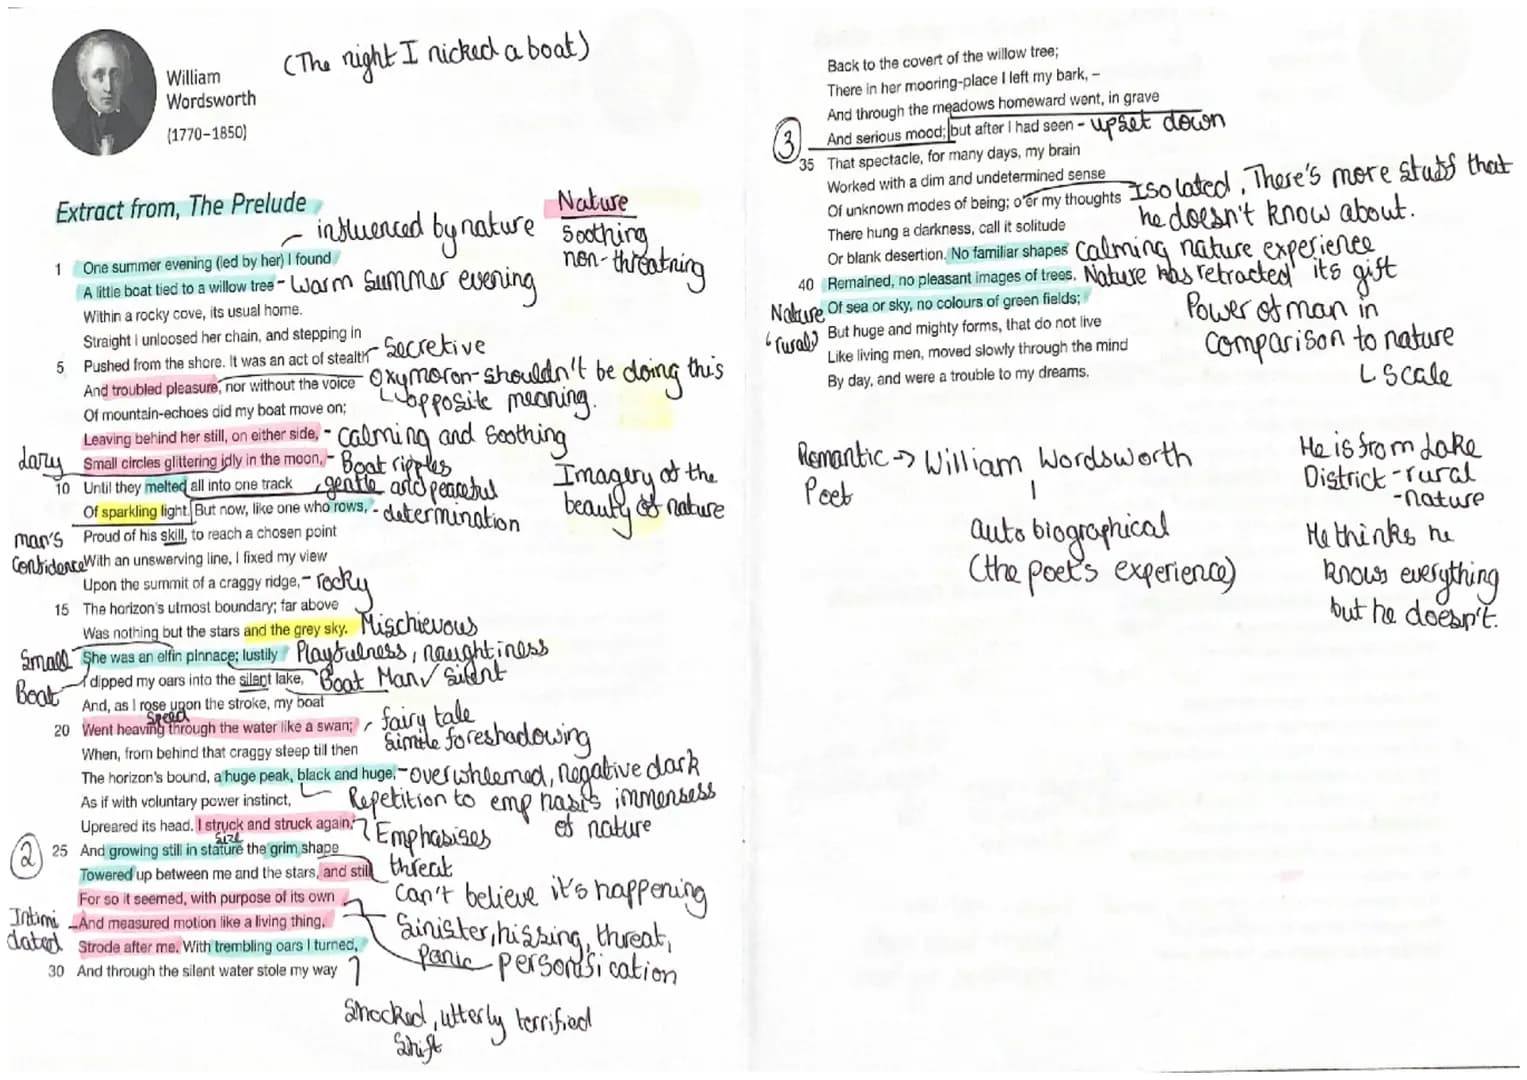 (The night I nicked a boat)
William
Wordsworth
(1770-1850)
Extract from, The Prelude
Nature
Soothing
non-threatning
- influenced by nature
1 One summer evening (led by her) I found
A little boat tied to a willow tree - Warm Summer evening
Within a rocky cove, its usual home.
Straight I unloosed her chain, and stepping in
5 Pushed from the shore. It was an act of stealth - Secretive
And troubled pleasure, nor without the voice Oxymoron - shouldn't be doing this
↳ opposite meaning.
Of mountain-echoes did my boat move on;
Leaving behind her still, on either side, - calming and soothing
lazy Small circles glittering idly in the moon, - Boat ripples
10 Until they melted all into one track gentle and peaceful
Imagery of the
beauty of nature
Of sparkling light. But now, like one who rows, - determination
man's
confidence
Proud of his skill, to reach a chosen point
With an unswerving line, I fixed my view
Upon the summit of a craggy ridge, - rocky
15 The horizon's utmost boundary; far above
Was nothing but the stars and the grey sky. Mischievous
Small
Boat
She was an elfin pinnace; lustily Playfulness, naughtiness
I dipped my oars into the silent lake, Boat Man✓ Silent
And, as I rose upon the stroke, my boat
Speed
20 Went heaving through the water like a swan; fairy tale
simile foreshadowing
When, from behind that craggy steep till then
The horizon's bound, a huge peak, black and huge, - overwhlemed, negative dark
As if with voluntary power instinct, Repetition to emphasis immensess
of nature
Upreared its head. I struck and struck again, Emphasises
threat
size
2 25 And growing still in stature the grim shape
Towered up between me and the stars, and still
can't believe it's happening
For so it seemed, with purpose of its own
Intimi
dated
And measured motion like a living thing, Sinister, hissing, threat,
Panic personification
Strode after me. With trembling oars I turned,
30 And through the silent water stole my way
Shocked, utterly terrified
Shift
Back to the covert of the willow tree;
There in her mooring-place I left my bark, –
And through the meadows homeward went, in grave
3 And serious mood; but after I had seen - upset down
35 That spectacle, for many days, my brain
Worked with a dim and undetermined sense
Of unknown modes of being; o'er my thoughts Isolated, There's more stuff that
he doesn't know about.
There hung a darkness, call it solitude
Or blank desertion. No familiar shapes calming nature experience
40 Remained, no pleasant images of trees, Nature has retracted its gift
Nature
'rural'
Of sea or sky, no colours of green fields;
But huge and mighty forms, that do not live
Like living men, moved slowly through the mind
By day, and were a trouble to my dreams.
Power of man in
comparison to nature
↳ Scale
Romantic → William Wordsworth
Poet
auto biographical
(the poet's experience)
He is from Lake
District - rural
- nature
He thinks he
knows everything
but he doesn't.